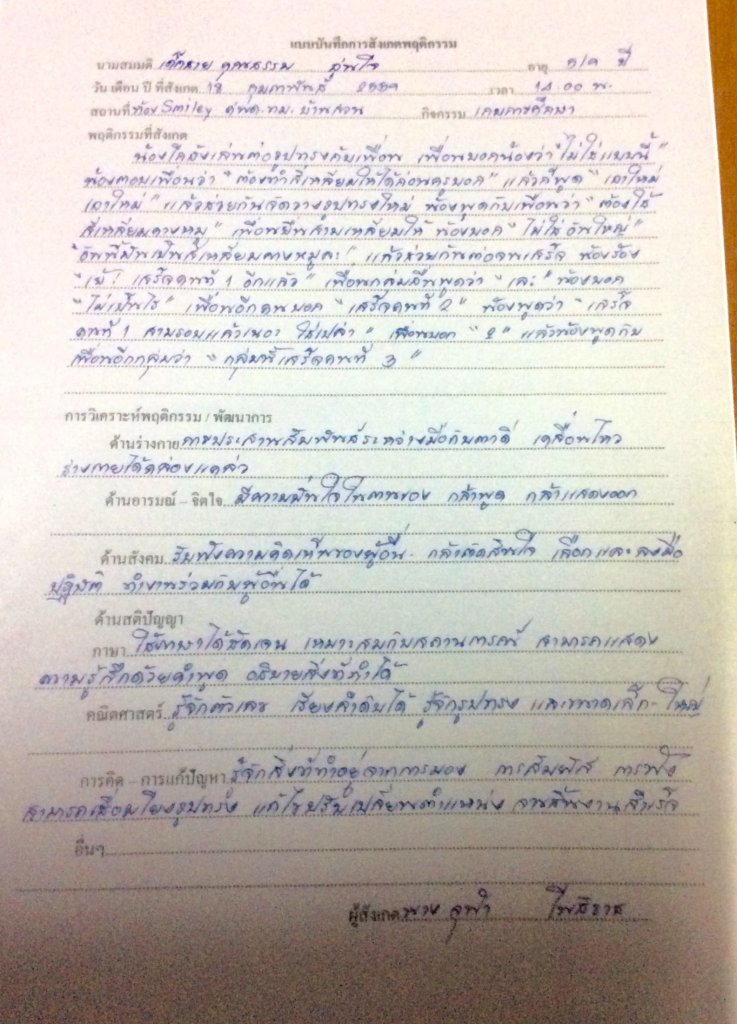 แบบบันทึกการสังเกตพฤติกรรม
นามสมมติ เด็กชาย คุณธรรม อุ่นใจ อายุ ปี
วัน เดือน ปี ที่สังเกต 18 กุมภาพันธ์ เวลา 14.00 น.
สถานที่ ห้อง Smiley ศูพด.ทม. บ้านสวน กิจกรรม เกมการศึกษา
พฤติกรรมที่สังเกต
น้องโต๊ดเล่นต่อรูปทรงกับเพื่อน เพื่อนบอกน้องว่า "ไม่ใช่แบบนี้"
น้องตอบเพื่อนว่า "ต้องทำสี่เหลี่ยมให้ได้ก่อนครูบอก" แล้วก็พูด "เอาใหม่
เอาใหม่" แล้วช่วยกันจัดวางรูปทรงใหม่ น้องพูดกับเพื่อนว่า "ต้องใช้
สี่เหลี่ยมคางหมู" เพื่อนยื่นสามเหลี่ยมให้ น้องบอก "ไม่ใช่ อันใหญ่"
"อันนี้มันเป็นสี่เหลี่ยมคางหมูคะ" แล้วช่วยกันต่อจนเสร็จ น้องร้อง
"เย้! เสร็จคนที่ 1 อีกแล้ว" เพื่อนกลุ่มอื่นพูดว่า "เละ" น้องบอก
"ไม่เป็นไร" เพื่อนอีกคนบอก "เสร็จคนที่ 2" น้องพูดว่า "เสร็จ
คนที่ 1 สามรอบแล้วเนอะ ใช่เปล่า" เพื่อนบอก "2" แล้วน้องพูดกับ
เพื่อนอีกกลุ่มว่า "กลุ่มนี้เสร็จคนที่ 3"
การวิเคราะห์พฤติกรรม / พัฒนาการ
ด้านร่างกาย การประสานสัมพันธ์ระหว่างมือกับตาดี เคลื่อนไหว
ร่างกายได้คล่องแคล่ว
ด้านอารมณ์ – จิตใจ มีความมั่นใจในตนเอง กล้าพูด กล้าแสดงออก
ด้านสังคม รับฟังความคิดเห็นของผู้อื่น กล้าตัดสินใจ เลือกและลงมือ
ปฏิบัติ ทำงานร่วมกับผู้อื่นได้
ด้านสติปัญญา
ภาษา ใช้ภาษาได้ชัดเจน เหมาะสมกับสถานการณ์ สามารถแสดง
ความรู้สึกด้วยคำพูด อธิบายสิ่งที่ทำได้
คณิตศาสตร์ รู้จักตัวเลข เรียงลำดับได้ รู้จักรูปทรง และขนาดเล็ก-ใหญ่
การคิด – การแก้ปัญหา รู้จักสิ่งที่ทำอยู่จากการมอง การสัมผัส การฟัง
สามารถเชื่อมโยงรูปทรง แก้ไขปรับเปลี่ยนตำแหน่ง จนชิ้นงานสำเร็จ
อื่นๆ
ผู้สังเกต นาง